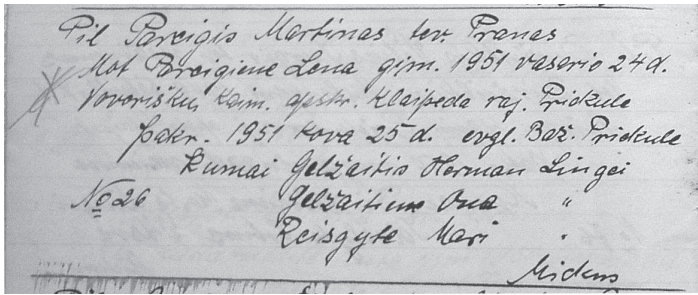 Pil Pareigis Martinas tev. Pranas
Mot Pareigiene Lena gim. 1951 vasario 24 d.
Voveriškų kaim. apskr. Klaipeda raj. Priekule
pakr. 1951 kova 25 d. evgl. Baž. Priekule
Kumai Gelžaitis Herman Lingei
No 26 Gelžaitiene Ona "
Reisgyte Mari "